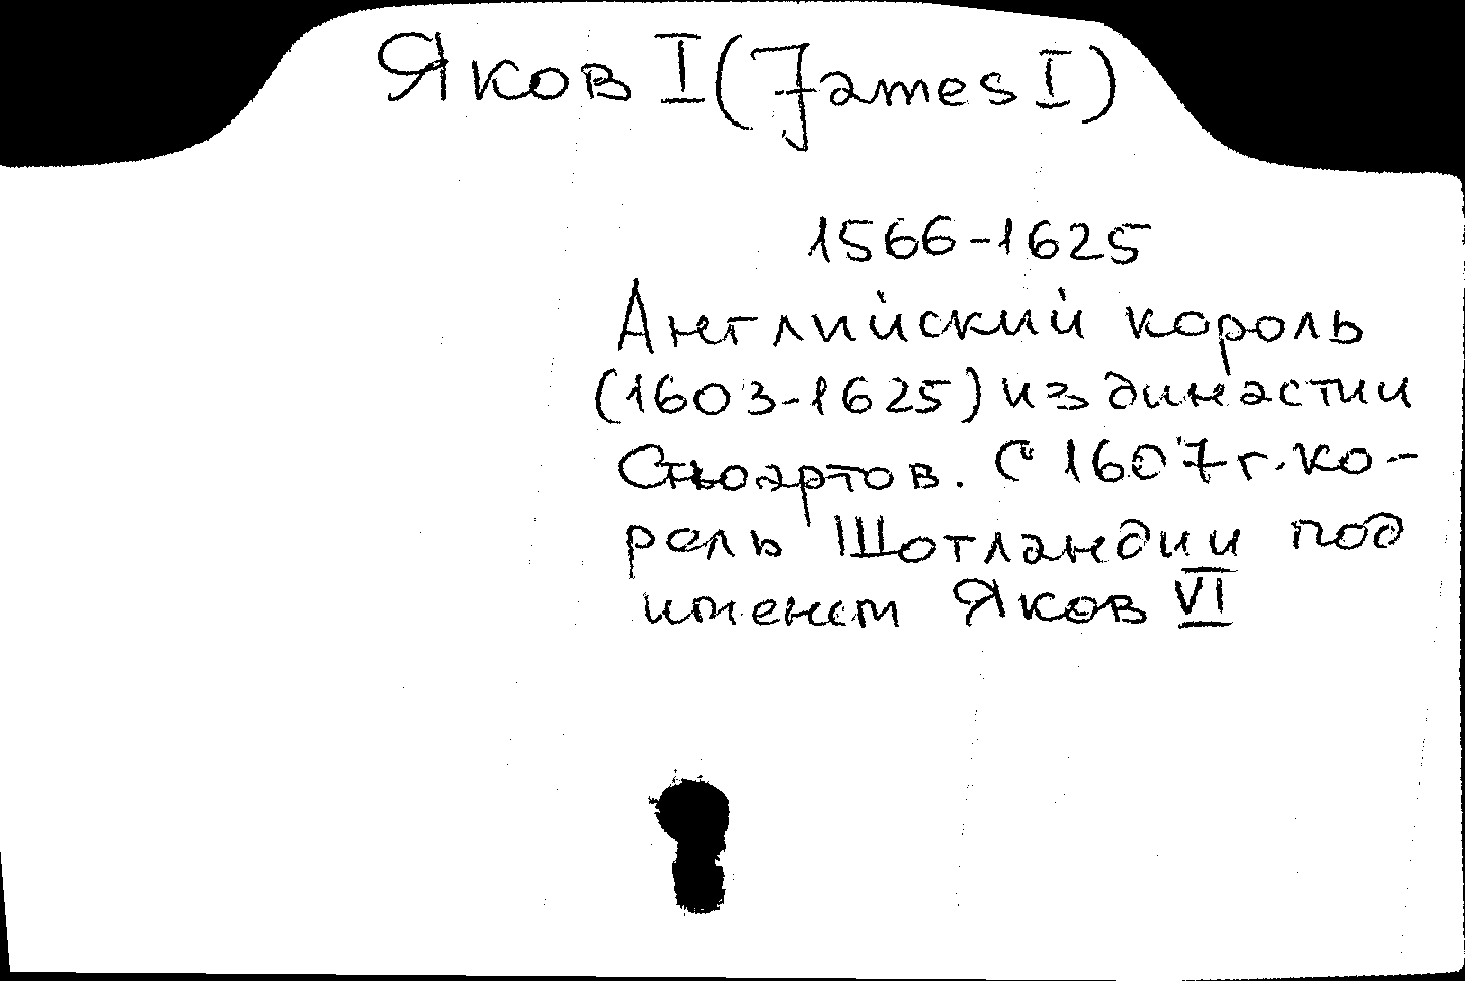 Яков I (James I)
1566-1625
Английский король
(1603-1625) из династии
Стюартов. С 1607 г. ко-
роль Шотландии под
именем Яков VI